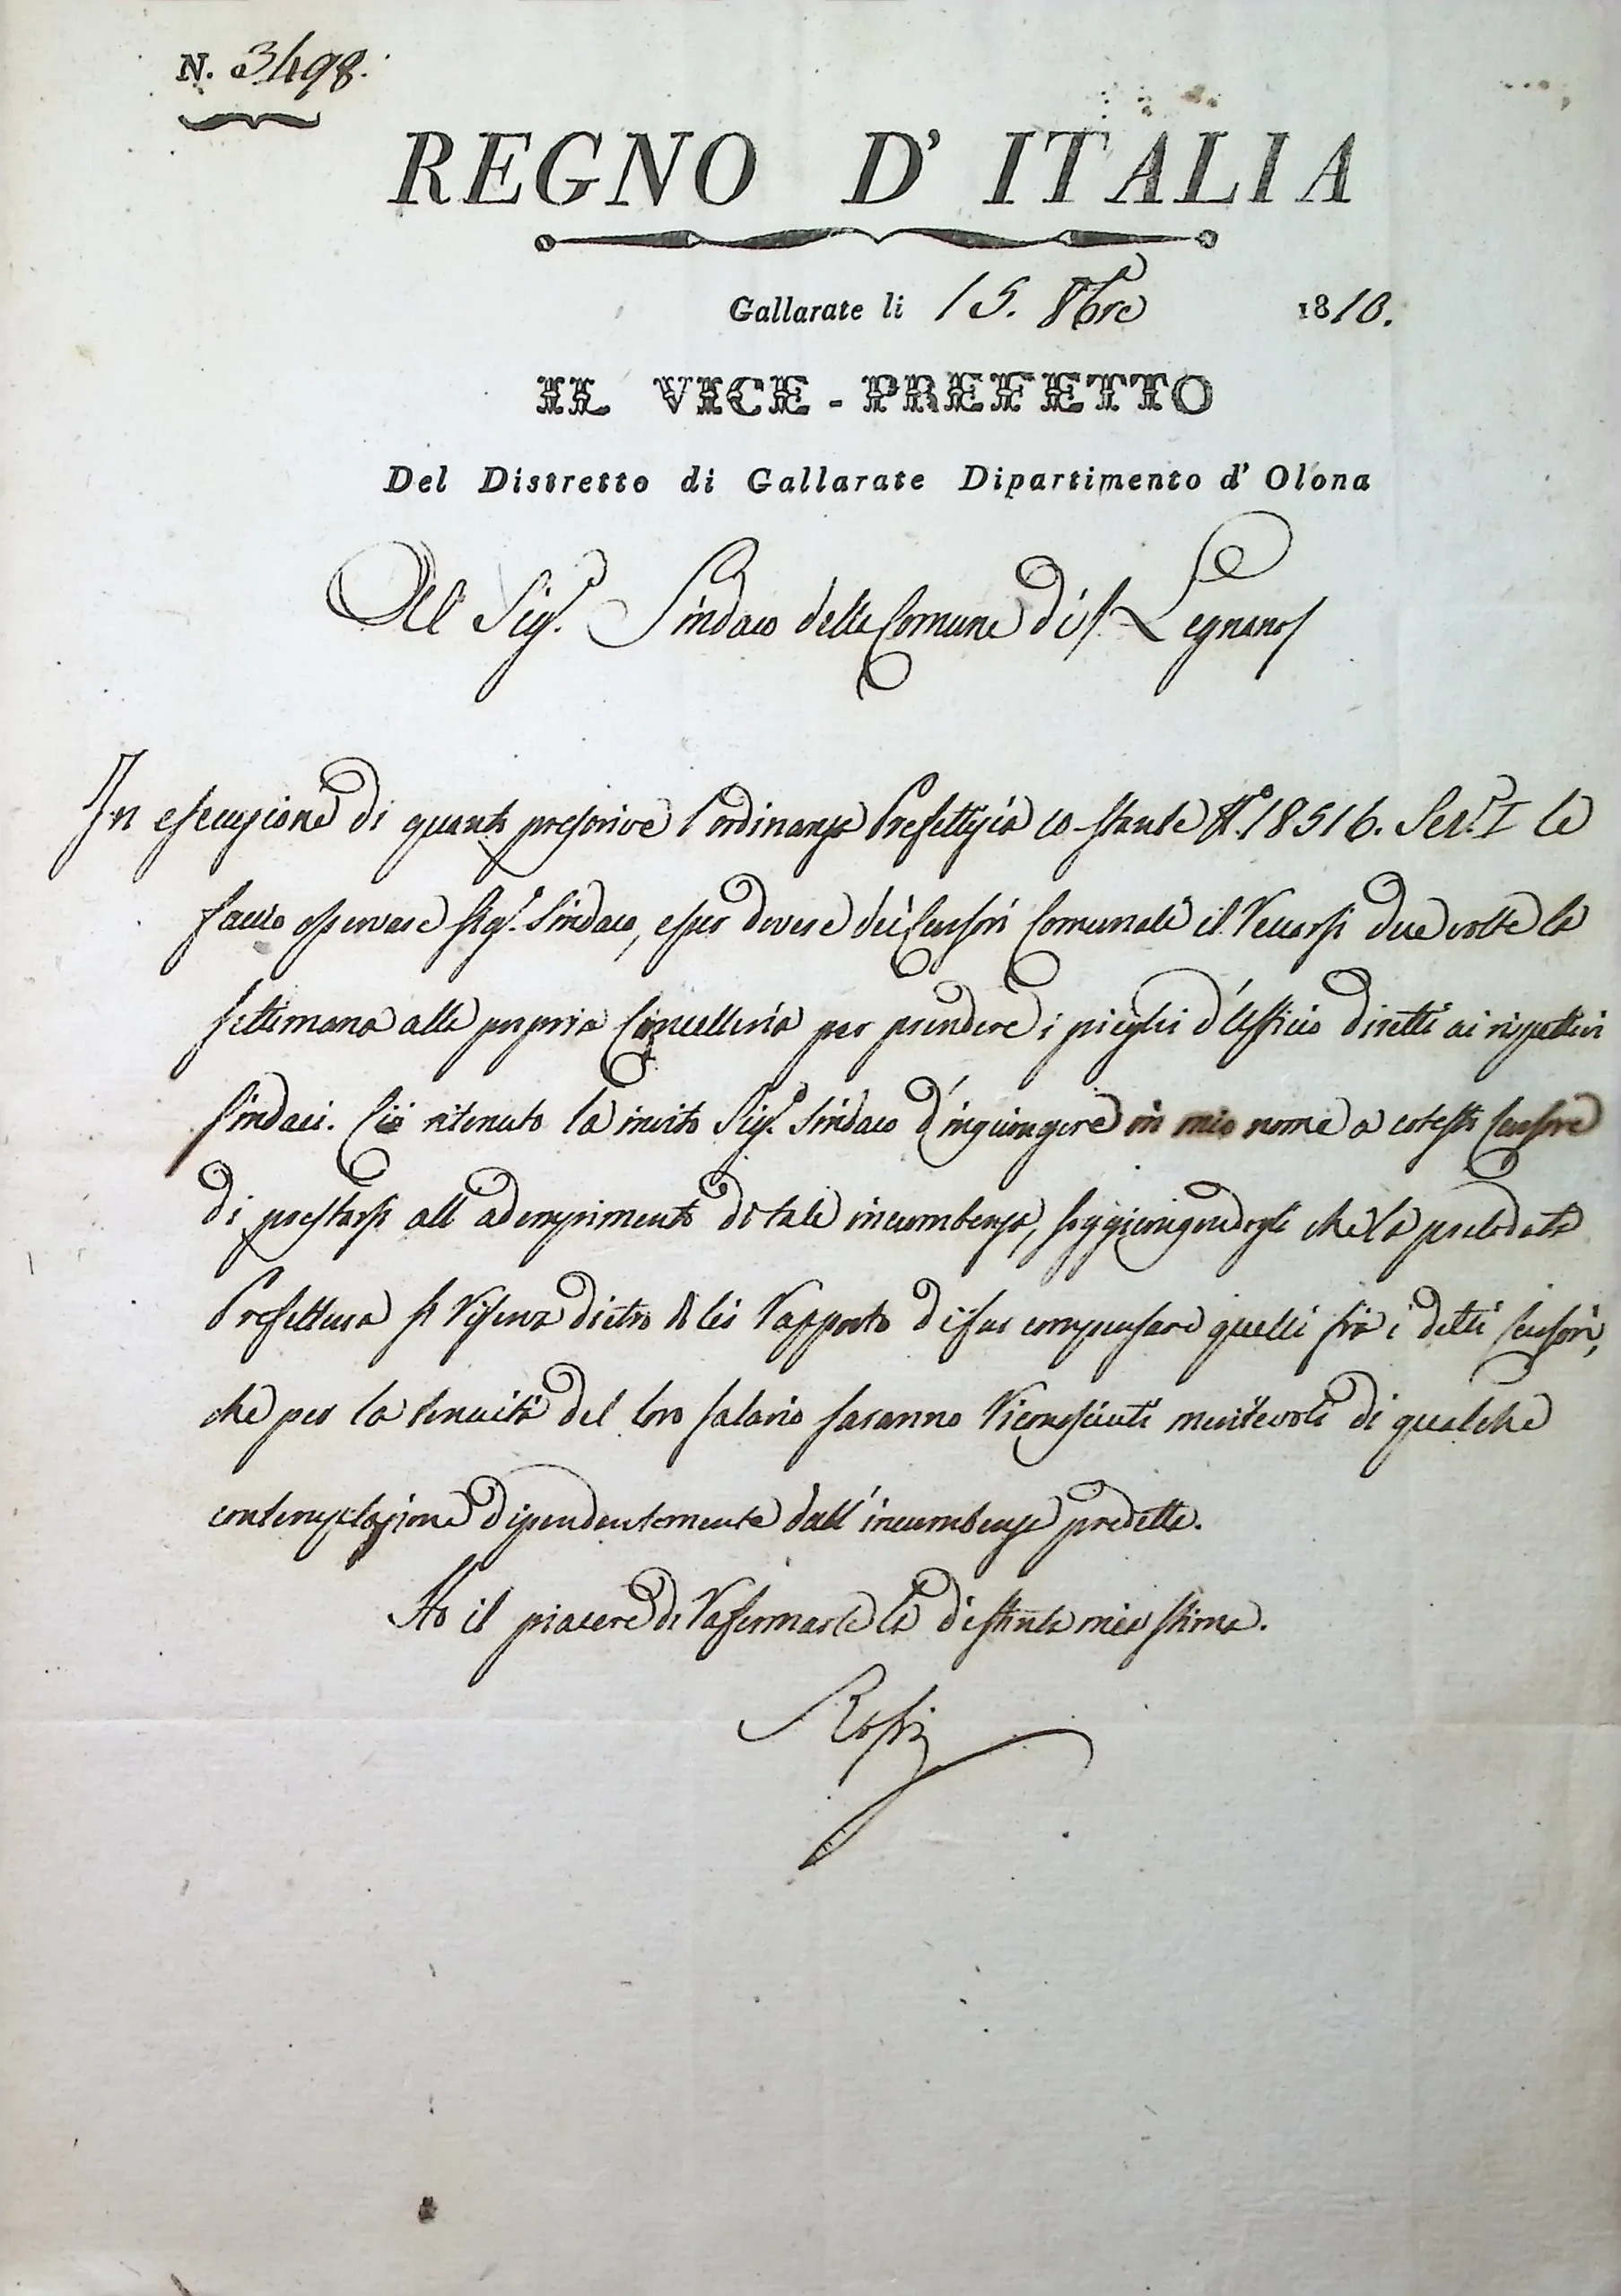 N. 3498.
REGNO D' ITALIA
Gallarate li 15. 8bre 1810.
IL VICE-PREFETTO
Del Distretto di Gallarate Dipartimento d' Olona
Al Sigr. Sindaco della Comune di Legnano
In esecuzione di quanto prescrive l'ordinanza Prefettizia N.o 18516. Sez. I le
faccio osservare Sigr. Sindaco, esser dovere dei Cursori Comunali il recarsi due volte la
settimana alla propria Cancelleria per prendere i pieghi d'Ufficio diretti ai rispettivi
Sindaci. Ciò ritenuto la invito Sigr. Sindaco d'ingiungere in mio nome a cotesto Cursore
di prestarsi all adempimento di tale incombenza, soggiungendogli che la prelodata
Prefettura si riserva dietro di lei rapporto di far compensare quelli frà i detti Cursori,
che per la tenuità del loro salario saranno riconosciuti meritevoli di qualche
contemplazione dipendentemente dall'incombenza predetta.
Ho il piacere di raffermarle la distinta mia stima.
Rossi